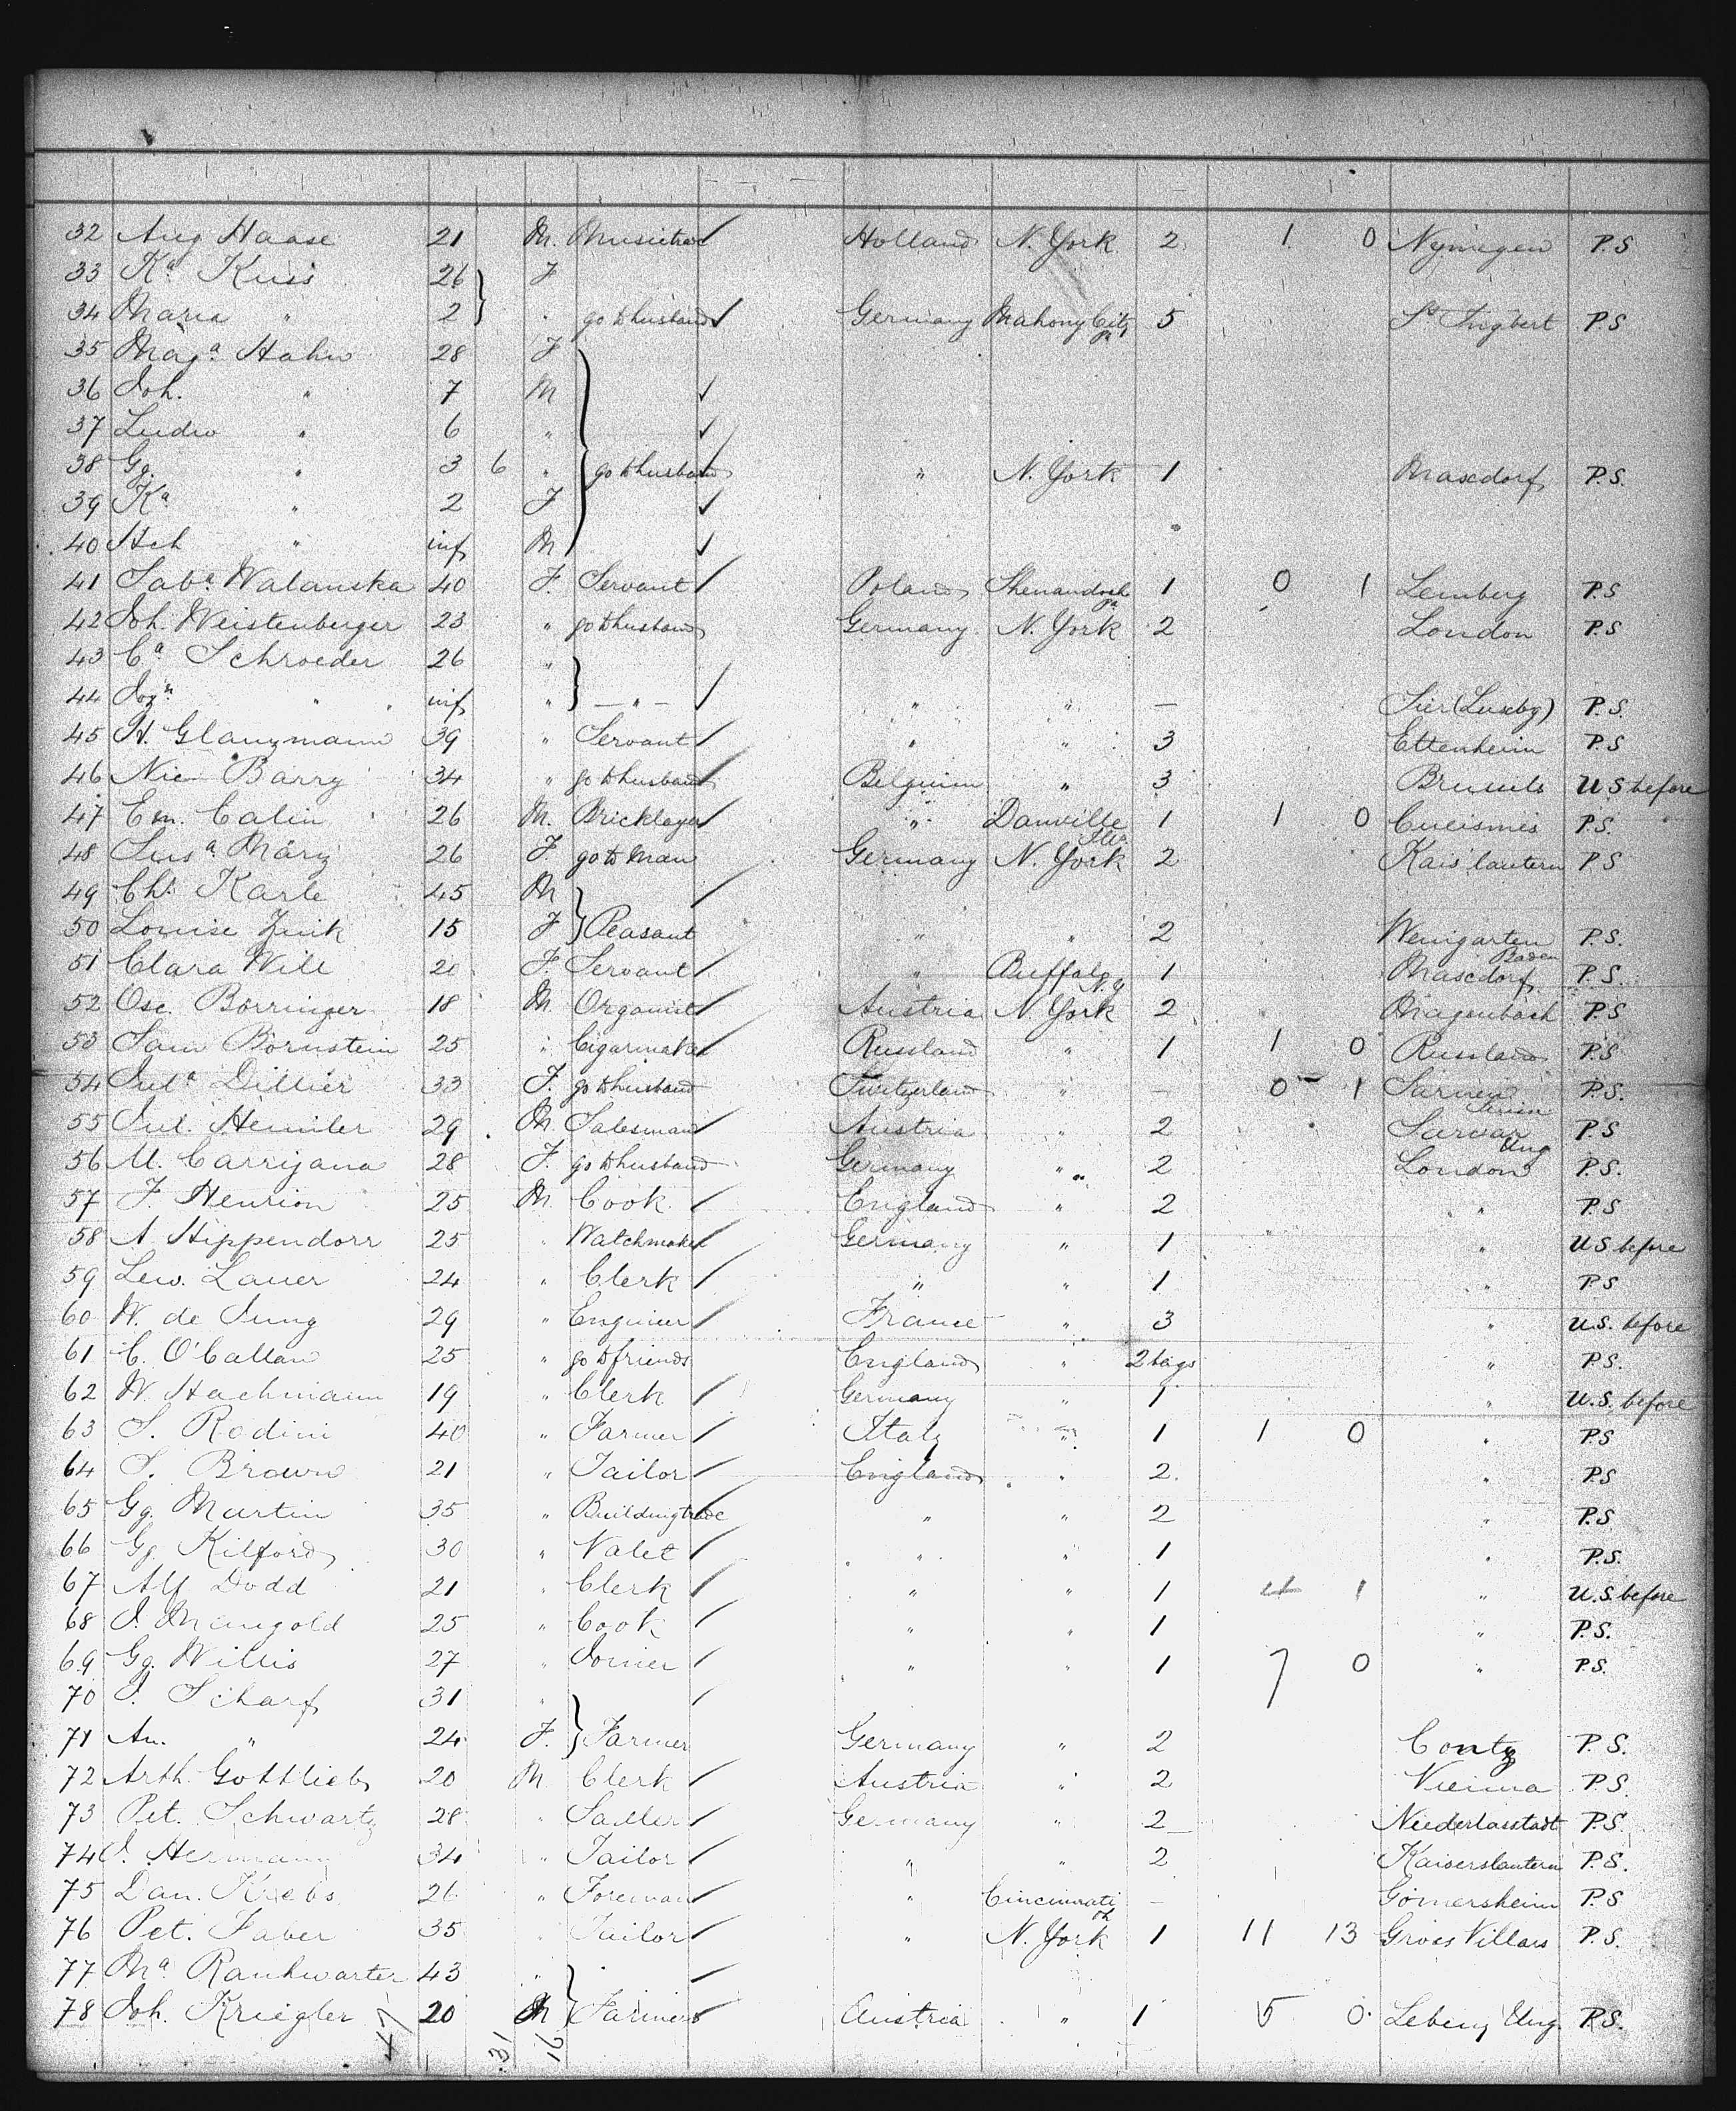 32 Aug Haase 21 M. Musician Holland N. York 2 1 0 Nymegen P.S
33 Kª Kuss 26 F
34 Maria " 2 " go to husband Germany Mahony City Pa 5 St Ingbert P.S
35 Magª Hahn 28 F
36 Joh. " 7 M
37 Ludw " 6 "
38 Gg. " 3 6 " go to husband " N. York 1 Maxdorf P.S.
39 Kª " 2 F
40 Hch " inf M
41 Sabª Walanska 40 F. Servant Poland Shenandoah Pa 1 0 1 Lemberg P.S
42 Joh. Weistenberger 23 " go to husband Germany N. York 2 London P.S
43 Cª Schroeder 26 "
44 " inf " — " — " " — (Luxbg) P.S.
45 H. Glanzmann 39 " Servant " " 3 Ettenheim P.S
46 Nic Barry 34 " go to husband Belgium " 3 Brussels U S before
47 Em. Calin 26 M. Bricklayer " Danville 1 1 0 Cueismes P.S.
48 Susª März 26 F. go to man Germany N. York 2 Kais'lautern P S
49 Chr. Karle 45 M
50 Louise Zink 15 F Peasant " " 2 Weingarten Baden P.S.
51 Clara Will 20 F. Servant " Buffalo N.Y 1 Maxdorf P.S.
52 Osc. Börringer 18 M Organist Austria N York 2 Magenbach P.S
53 Sam Bornstein 25 " Cigarmaker Russland " 1 1 0 Russland P.S
54 Julª Dillier 33 F. go to husband Switzerland " — 0 1 Sarnen P.S.
55 Jul. Hemiler 29 M. Salesman Austria " 2 Sarvar Ung P.S
56 M. Carrijana 28 F. go to husband Germany " 2 London P.S.
57 F. Henrion 25 M Cook England " 2 " P.S
58 A. Hippendorr 25 " Watchmaker Germany " 1 " U S before
59 Lew. Lauer 24 " Clerk " " 1 " P S
60 W. de Jung 29 " Engineer France " 3 " U.S. before
61 C. O'Callan 25 " go to friends England " 2 bags " P.S.
62 W. Hachmann 19 " Clerk Germany " 1 " U.S. before
63 S. Rodini 40 " Farmer Italy " 1 1 0 " P.S
64 S. Brown 21 " Tailor England " 2. " P.S
65 Gg. Martin 35 " Buildingtrade " " 2 " P.S
66 Gg. Kilford 30 " Valet " " 1 " P.S.
67 Alf Dodd 21 " Clerk " " 1 4 1 " U.S. before
68 J. Mangold 25 " Cook " " 1 " P.S.
69 Gg. Willis 27 " Joiner " " 1 7 0 " P.S.
70 J. Scharf 31 "
71 An. " 24 F. Farmer Germany " 2 Contz P.S.
72 Arth. Gottlieb 20 M. Clerk Austria " 2 Vienna P.S.
73 Pet. Schwartz 28 " Sadler Germany " 2 Niederlusstadt P.S
74 J. Hermann 34 " Tailor " " 2 Kaiserslautern P.S.
75 Dan. Krebs 26 " Foreman " Cincinnati Oh — Gömersheim P.S
76 Pet. Faber 35 " Tailor " N. York 1 11 13 Gross Villars P.S.
77 Mª Rauhwarter 43 "
78 Joh. Kriegler 20 M Farmers Austria " 1 5 0 Lebeny Ung. P.S.